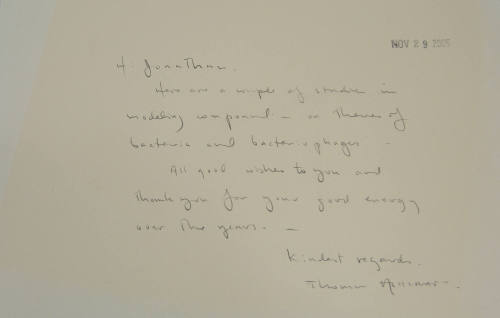 NOV 29 2005
Hi Jonathan.
Here are a couple of studies in
modeling compound — on themes of
bacteria and bacteriophages.
All good wishes to you and
thank you for your good energy
over the years. —
Kindest regards.
Thomas